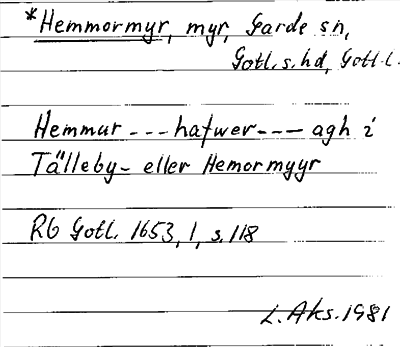 *Hemmormyr, myr, Garde sn,
Gotl. s. hd, Gotl. l.
Hemmur --- hafwer --- agh i
Tälleby - eller Hemormyyr
RG Gotl. 1653, 1, s. 118
L. Aks. 1981